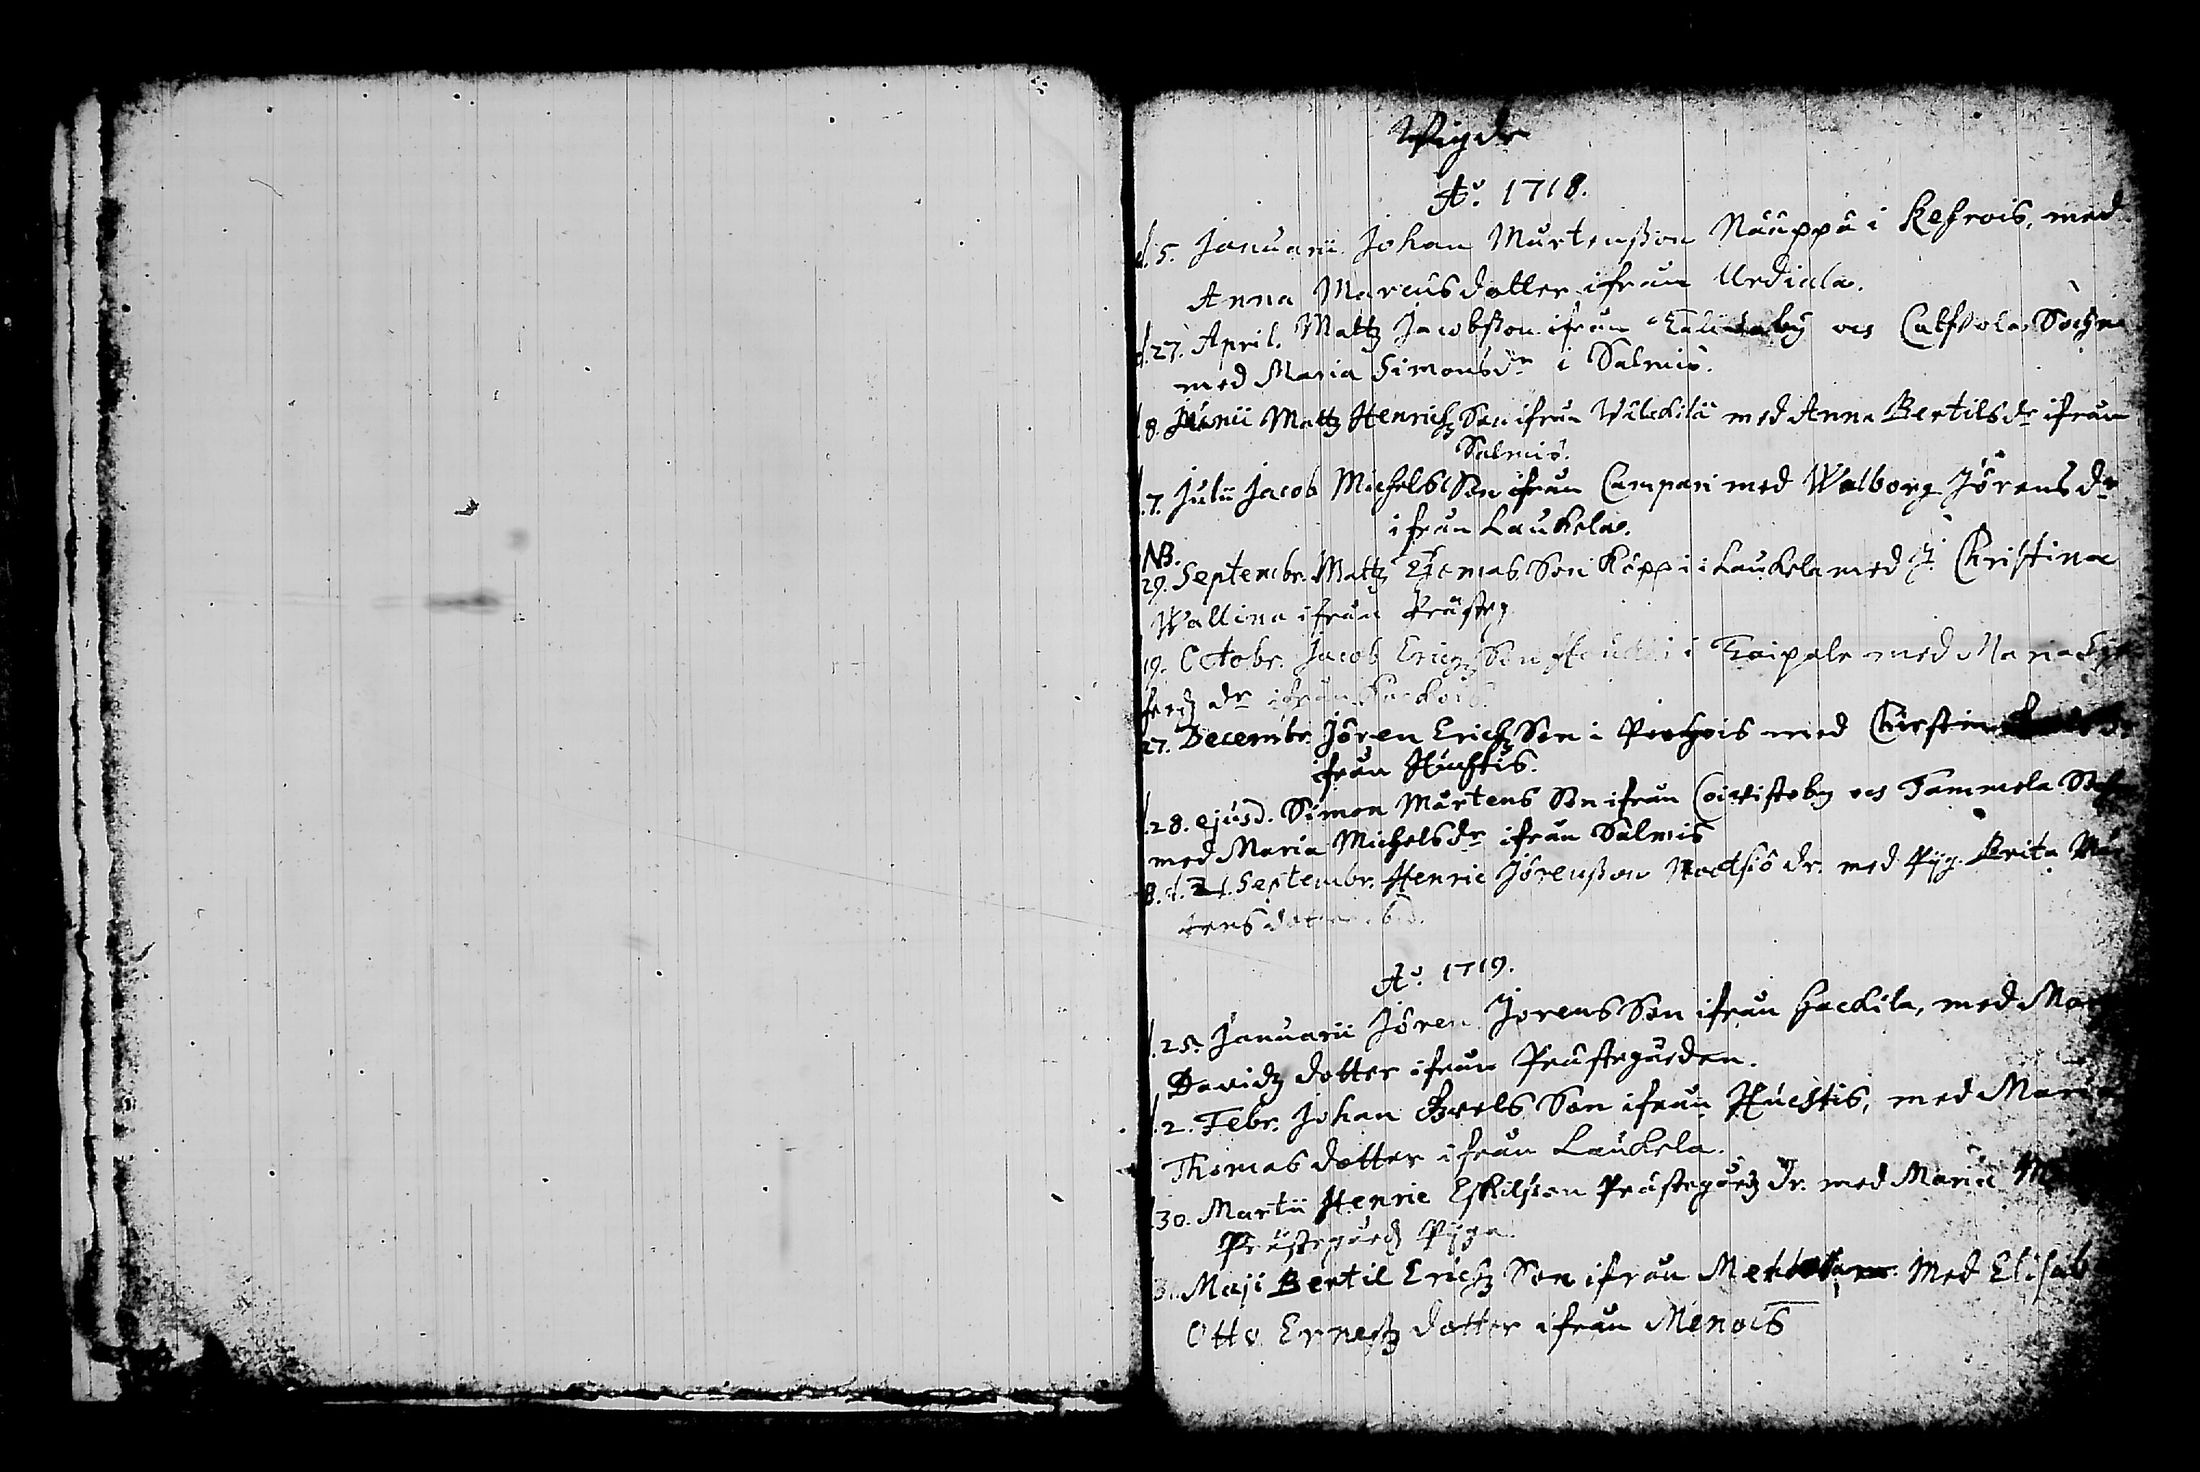 Wigde
Ao. 1718.
d. 5. Januarii. Johan Mårtensson Näuppä i Kehrois, med
Anna Marcusdotter ifrån Urdiala.
d. 27. April. Mattz Jacobsson ifrån och Calfvola Sochn
med Maria Simonsdr i Salmis.
d. 8. Junii Mattz Henrichz Son ifrån Wälckilä med Anna Bertilsdr ifrån
Salmis.
d. 7. Julii Jacob Michels Son ifrån Campari med Walborg Jörensdr
ifrån Laukela.
NB.
29. Septembr. Mattz Thomas SonKöppi i Laukela med Christina
Wallina ifrån Prästeg.
19. Octobr. Jacob Erichz Son i Taipale med Maria
dr ifrån
27. Decembr. Jören Erichz Son i med Chirstin
ifrån Huchtis.
d. 28. ejusd. Simon Mårtens Son ifrån Coivistoby och Tammela
med Maria Michelsdr ifrån Salmis
8. d. Septembr. Henric Jörensson dr. med Pig. Brita Mår
tensdotter
Ao. 1719.
d. 25. Januarii Jören Jörens Son ifrån Hackila, med
Davidz dotter ifrån Prästegården.
d. 2. Febr. Johan Axels Son ifrån Huchtis, med Maria
Thomas dotter ifrån Laukela.
30. Martii Henric Eskilsson Prästegårdz dr. med Maria
Prästegårdz Piga.
3. Maji Bertil Erichz Son ifrån med Elisab
Otto Ernestz dotter ifrån Menois